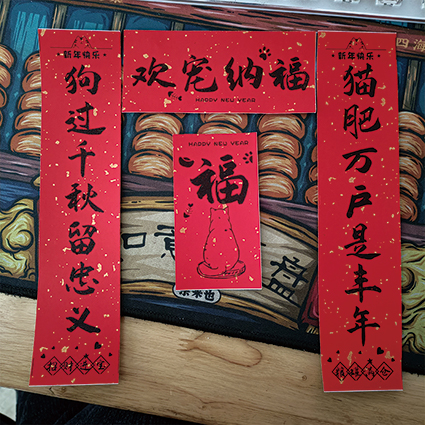 新年快乐
狗过千秋留忠义
招财进宝
欢宠纳福
HAPPY NEW YEAR
HAPPY NEW YEAR
福
新年快乐
猫肥万户是丰年
四海
如意
盘